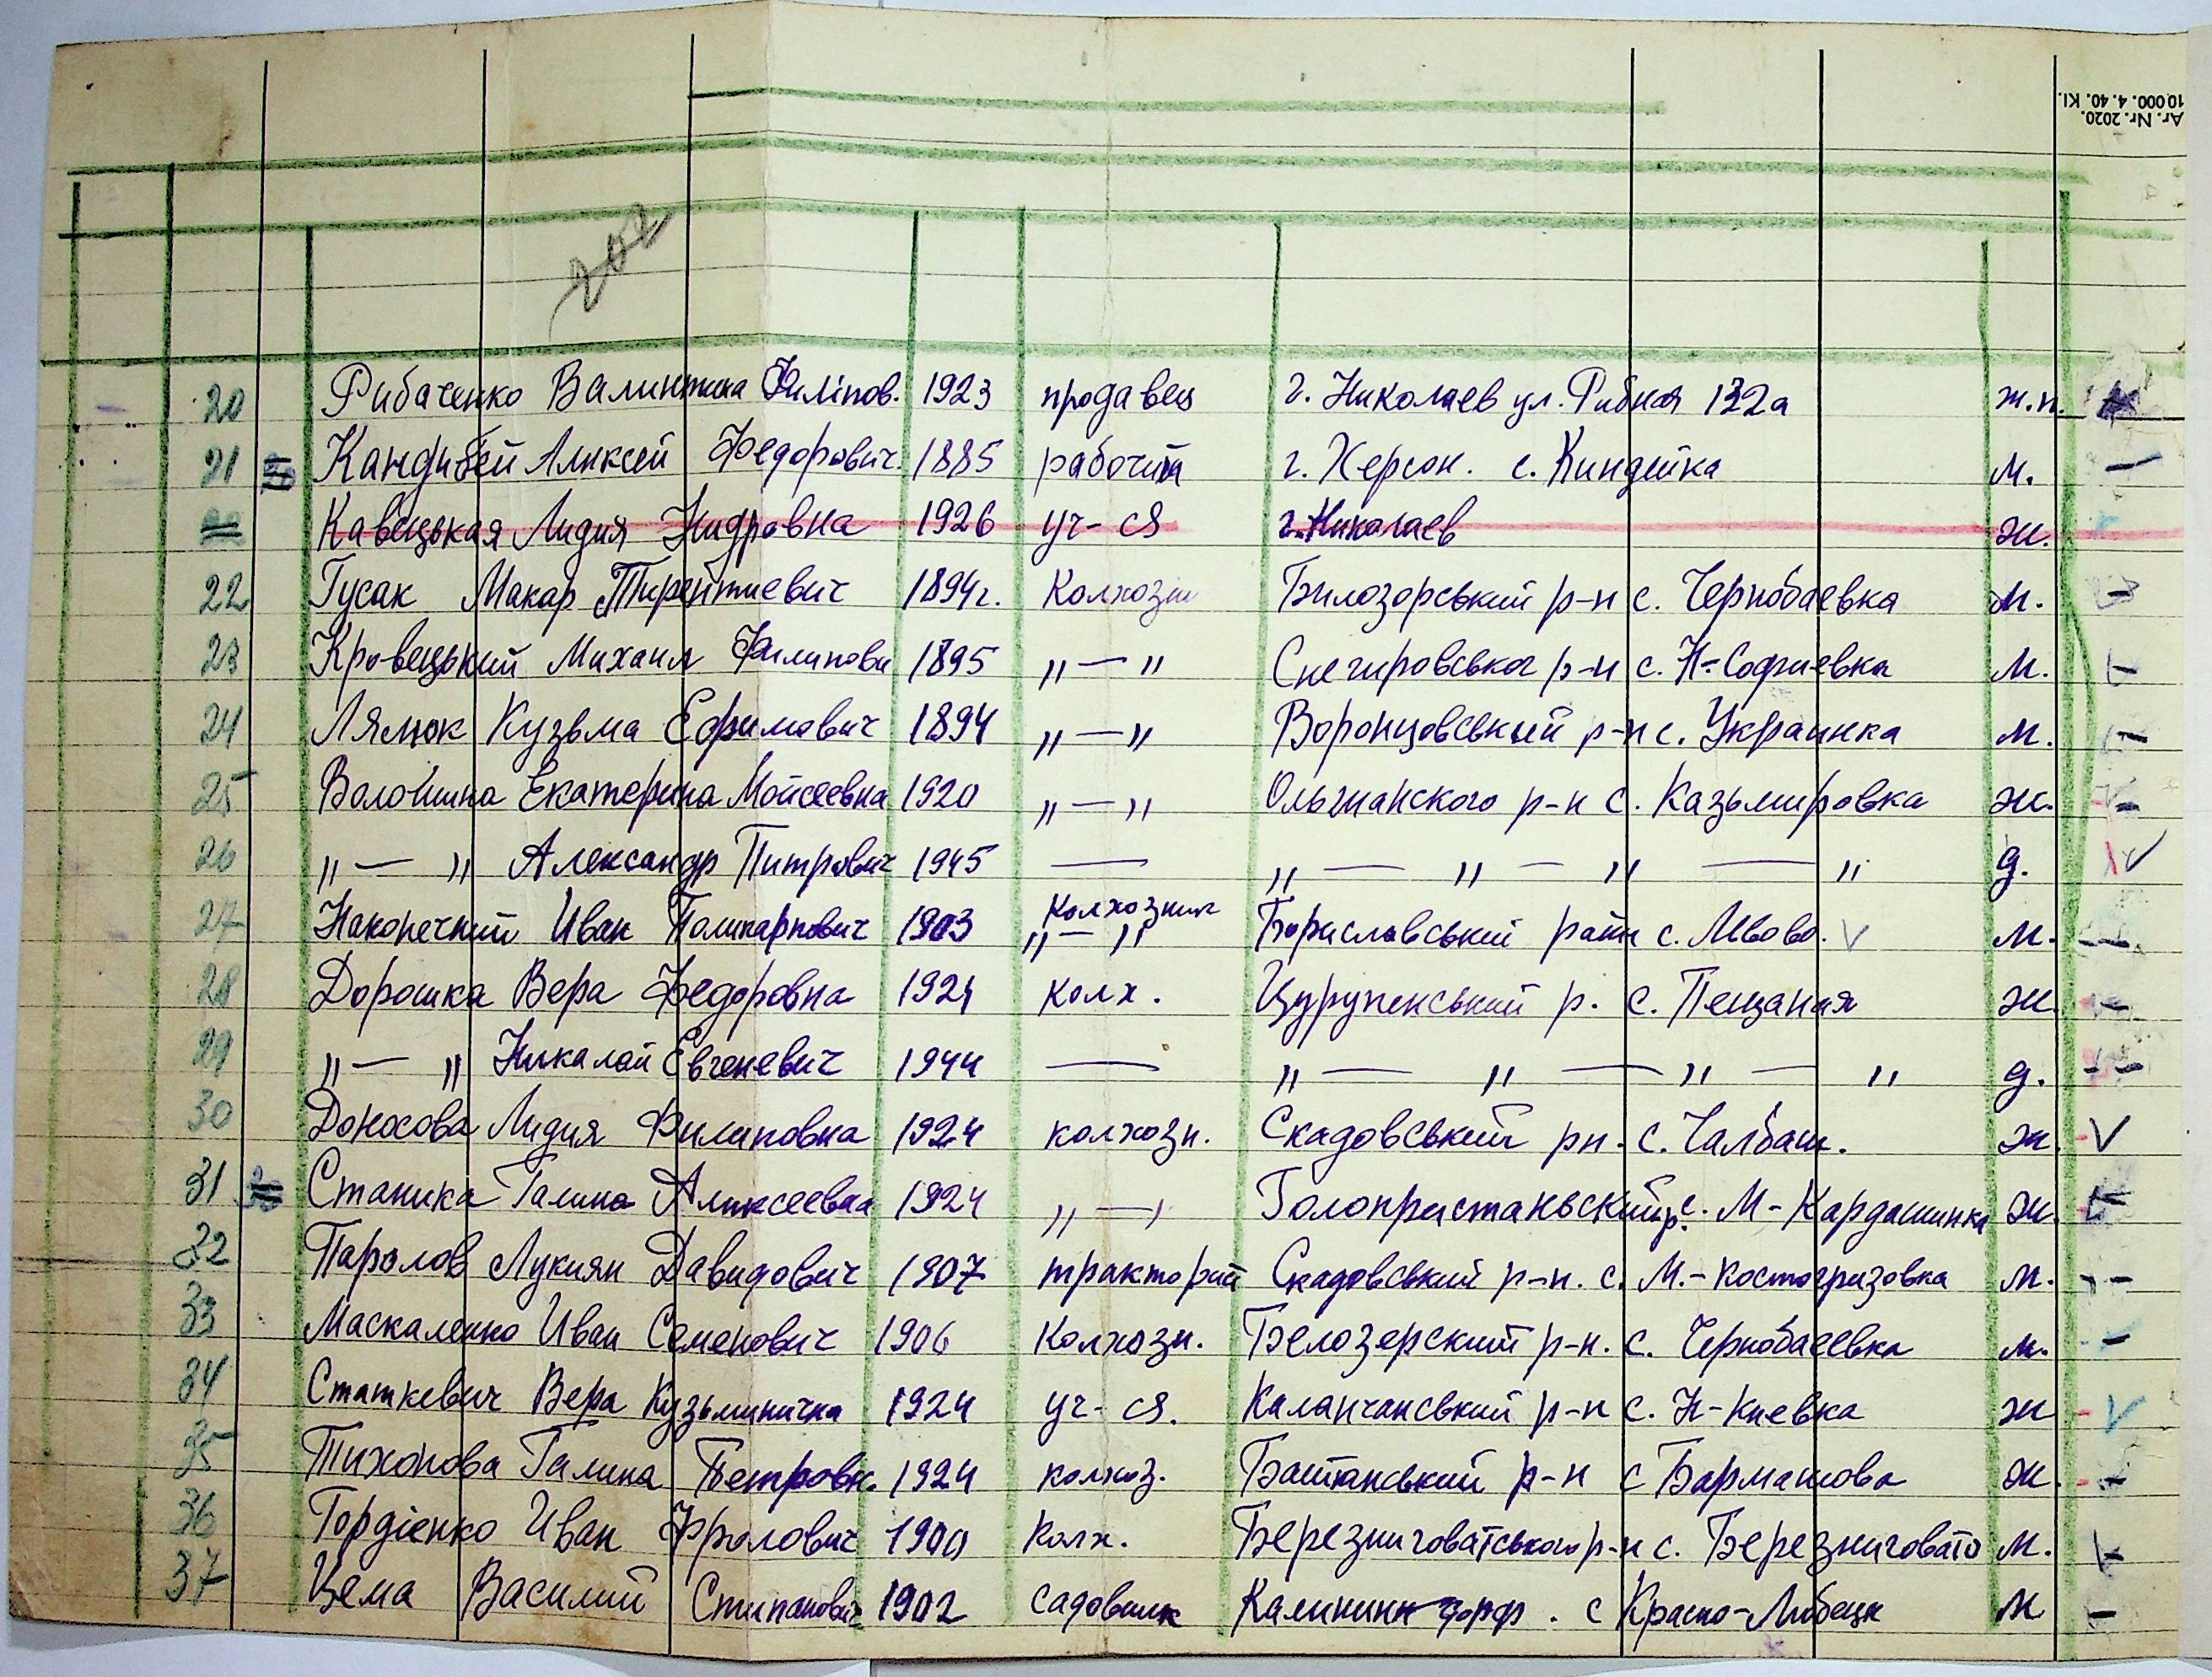 Ar. Nr. 2020.
10000. 4. 40. Kl.
202
20 Рибаченко Валинтина Филіпов. 1923 продавец г. Николаев ул. Рибная 132а ж.п.
21 Кандибей Аликсей Федорович. 1885 рабочий г. Херсон. с. Киндейка м.
Кавецькая Лидия Андровна 1926 уч-ся г. Николаев ж.
22 Гусак Макар Тирентиевич 1894г. Колхозн Билозорський р-н с. Чернобаевка м.
23 Кровецький Михаил Филипови 1895 „ — „ Снегировськог р-н с. Н-Софиевка м.
24 Лялюк Кузьма Ефимович 1894 „ — „ Воронцовський р-н с. Украинка м.
25 Волошина Екатерина Мойсеевна 1920 „ — „ Ольшанского р-н с. Казьмировка ж.
26 „ — „ Александр Питрович 1945 — „ — „ — „ — „ д.
27 Наконечний Иван Поликарпович 1903 Колхозник „ — „ Бориславський райн с. Львово. м.
28 Дорошка Вера Федоровна 1924 колх. Цурупенський р. с. Пещаная ж
29 „ — „ Никалай Евгеневич 1944 — „ — „ — „ — „ д.
30 Доносова Лидия Филиповна 1924 колхозн. Скадовський рн. с. Чалбаш. ж.
31 Станика Галина Аликсеевна 1924 „ — „ Голопристаньский р. с. М-Кардашинка ж
32 Паролов Лукиян Давидович 1907 тракторий Скадовський р-н. с. М.-Костогризовка м.
33 Маскаленко Иван Семенович 1906 Колхозн. Белозерский р-н. с. Чернобаевка м.
34 Статкевич Вера Кузьминична 1924 уч-ся. Каланчанський р-н с. Н-Киевка ж
35 Тихонова Галина Петровн. 1924 колхоз. Баштанський р-н с Барматова ж.
36 Гордіенко Иван Фролович 1900 Колх. Березниговатського р-н с. Березниговато м.
37 Цема Василий Стипанович 1902 садовник Калининд с Красно-Любецк м